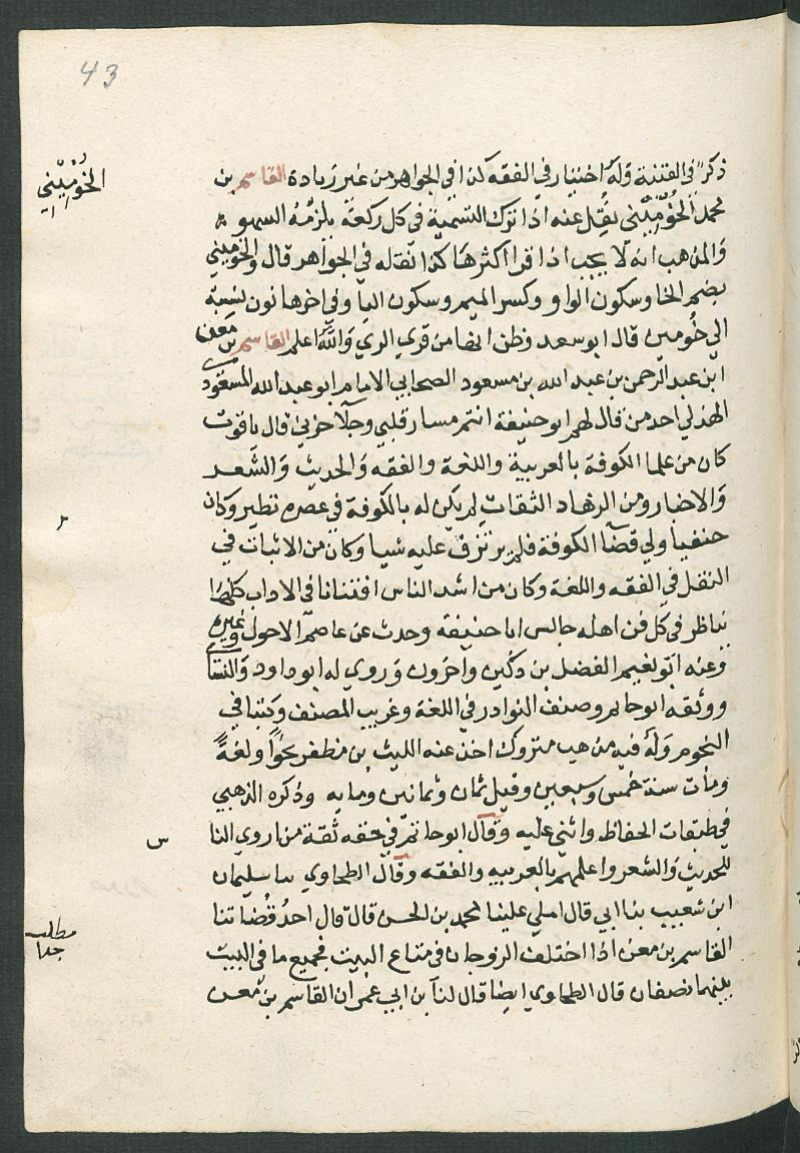 43
ذكر في القنية وله اختيار في الفقه كذا في الجواهر من غير زيادة القاسم بن
الخُومِيّني
محمد الخُومِيّني نقل عنه اذا ترك التسمية في كل ركعة يلزمه السهو
والمذهب انه لا يجب اذا قرا اكثرها كذا نقله في الجواهر قال والخوميني
بضم الخا وسكون الواو وكسر الميم وسكون اليا وفي اخرها نون نسبة
الي خُومين قال ابو سعد وظن انها من قري الري والله اعلم القاسم بن معن
ابن عبد الرحمن بن عبد الله بن مسعود الصحابي الامام ابو عبد الله المسعودي
الهذلي احد من قال لهم ابو حنيفة انتم مسار قلبي وجلا حزني قال ياقوت
كان من علما الكوفة بالعربية واللغة والفقه والحديث والشعر
والاخبار ومن الزهاد الثقات لم يكن له بالكوفة في عصره نظير وكان
حنفيا ولي قضا الكوفة فلم يرتزق عليه شيا وكان من الاثبات في
النقل في الفقه واللغة وكان من اشد الناس افتنانا في الاداب كلها
يناظر في كل فن اهله جالس ابا حنيفة وحدث عن عاصم الاحول وغيره
وعنه ابو نعيم الفضل بن دكين واخرون وروي له ابو داود والنسا
ووثقه ابو حاتم وصنف النوادر في اللغة وغريب المصنف وكتبا في
النحو وله فيه مذهب متروك اخذ عنه الليث بن مظفر نحوًا ولغةً
ومات سنة خمس وسبعين وقيل ثمان وثمانين ومايه وذكره الذهبي
في طبقات الحفاظ واثني عليه وقال ابو حاتم في حقه ثقة من اروي النا
س
للحديث والشعر واعلمهم بالعربيه والفقه وقال الطحاوي ثنا سليمان
ابن شعيب ثنا ابي قال املي علينا محمد بن الحسن قال قال احد قُضاتنا
مطلب
جدا
القاسم بن معن اذا اختلف الزوجان في متاع البيت فجميع ما في البيت
بينهما نصفان قال الطحاوي ايضا قال لنا بن ابي عمران القاسم بن معن